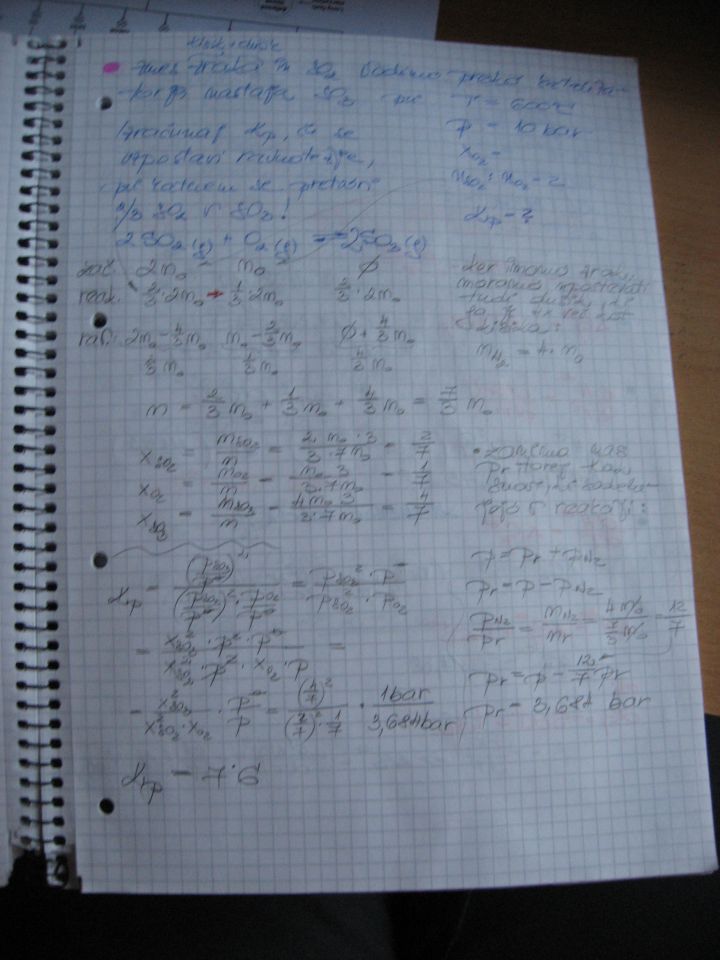 zmes zraka in SO₂ vodimo preko
nastaja SO₃ pri T = 600
Izračunaj Kp, če se
vzpostavi ravnotežje,
pri katerem se pretvori
2/3 SO₂ v SO₃!
p = 10 bar
x_O₂ =
n_SO₂ : n_O₂ = 2
Kp = ?
2SO₂(g) + O₂(g) ⇌ 2SO₃(g)
zač. 2n₀ n₀ ∅
reak. 2/3 · 2n₀ → 1/3 · 2n₀ 2/3 · 2n₀
2n₀ - 4/3 n₀ n₀ - 2/3 n₀ ∅ + 4/3 n₀
2/3 n₀ 1/3 n₀ 4/3 n₀
- ker imamo zrak,
moramo upoštevati
tudi dušik,
ga je 4x več kot
kisika:
n_N₂ = 4 · n₀
n = 2/3 n₀ + 1/3 n₀ + 4/3 n₀ = 7/3 n₀
x_SO₂ = n_SO₂/n = 2 · n₀ · 3 / 3 · 7n₀ = 2/7
x_O₂ = n_O₂/n = n₀ · 3 / 3 · 7n₀ = 1/7
x_SO₃ = n_SO₃/n = 4n₀ · 3 / 3 · 7n₀ = 4/7
• zanima nas
pr torej tlak
v reakciji:
Kp = (p_SO₃/p°)² / (p_SO₂/p°)² · p_O₂/p° = p_SO₃² · p° / p_SO₂² · p_O₂
= x²_SO₃ · p² · p° / x²_SO₂ · p² · x_O₂ · p =
= x²_SO₃ / x²_SO₂ · x_O₂ · p°/p = (4/7)² / (2/7)² · 1/7 · 1bar / 3,684bar
Kp = 7.6
p = pr + p_N₂
pr = p - p_N₂
p_N₂/pr = n_N₂/nr = 4n₀ / 7/3 n₀ = 12/7
pr = p - 12/7 pr
pr = 3,684 bar